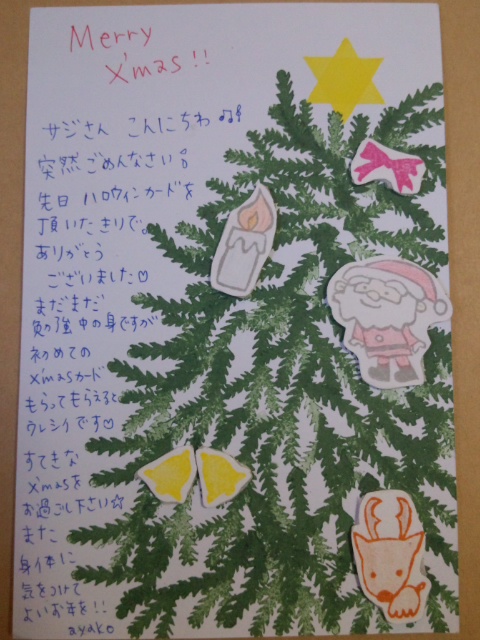 Merry
X'mas!!
サジさん こんにちわ♫
突然ごめんなさい
先日 ハロウィンカードを
頂いたきりで。
ありがとう
ございました♡
まだまだ
勉強中の身ですが
初めての
X'masカード
もらってもらえると
ウレシイです♡
すてきな
X'masを
お過ごし下さい☆
また
身体に
気をつけて
よいお年を!!
ayako